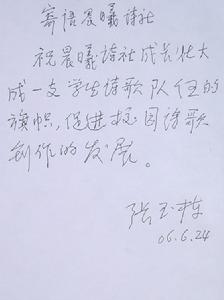 寄语晨曦诗社
祝晨曦诗社成长壮大
成一支学生诗歌队伍的
旗帜，促进校园诗歌
创作的发展。
张玉栋
06.6.24